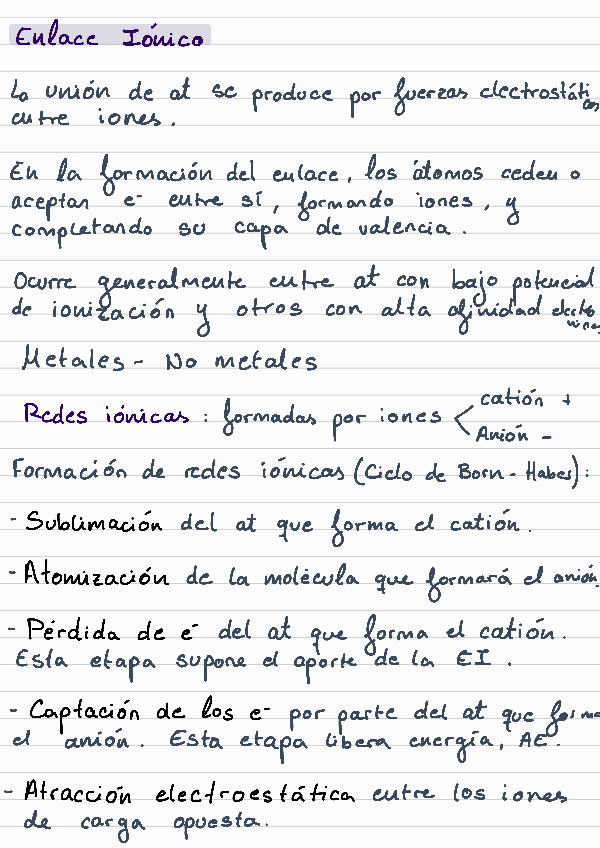 Enlace Iónico
La unión de at se produce por fuerzas electrostáticas
entre iones.
En la formación del enlace, los átomos ceden o
aceptan e⁻ entre sí, formando iones, y
completando su capa de valencia.
Ocurre generalmente entre at con bajo potencial
de ionización y otros con alta afinidad electrónica
Metales - No metales
Redes iónicas : formadas por iones < catión +
Anión -
Formación de redes iónicas (Ciclo de Born-Haber):
- Sublimación del at que forma el catión.
- Atomización de la molécula que formará el anión.
- Pérdida de e⁻ del at que forma el catión.
Esta etapa supone el aporte de la EI.
- Captación de los e⁻ por parte del at que forma
el anión. Esta etapa libera energía, AE.
- Atracción electroestática entre los iones
de carga opuesta.